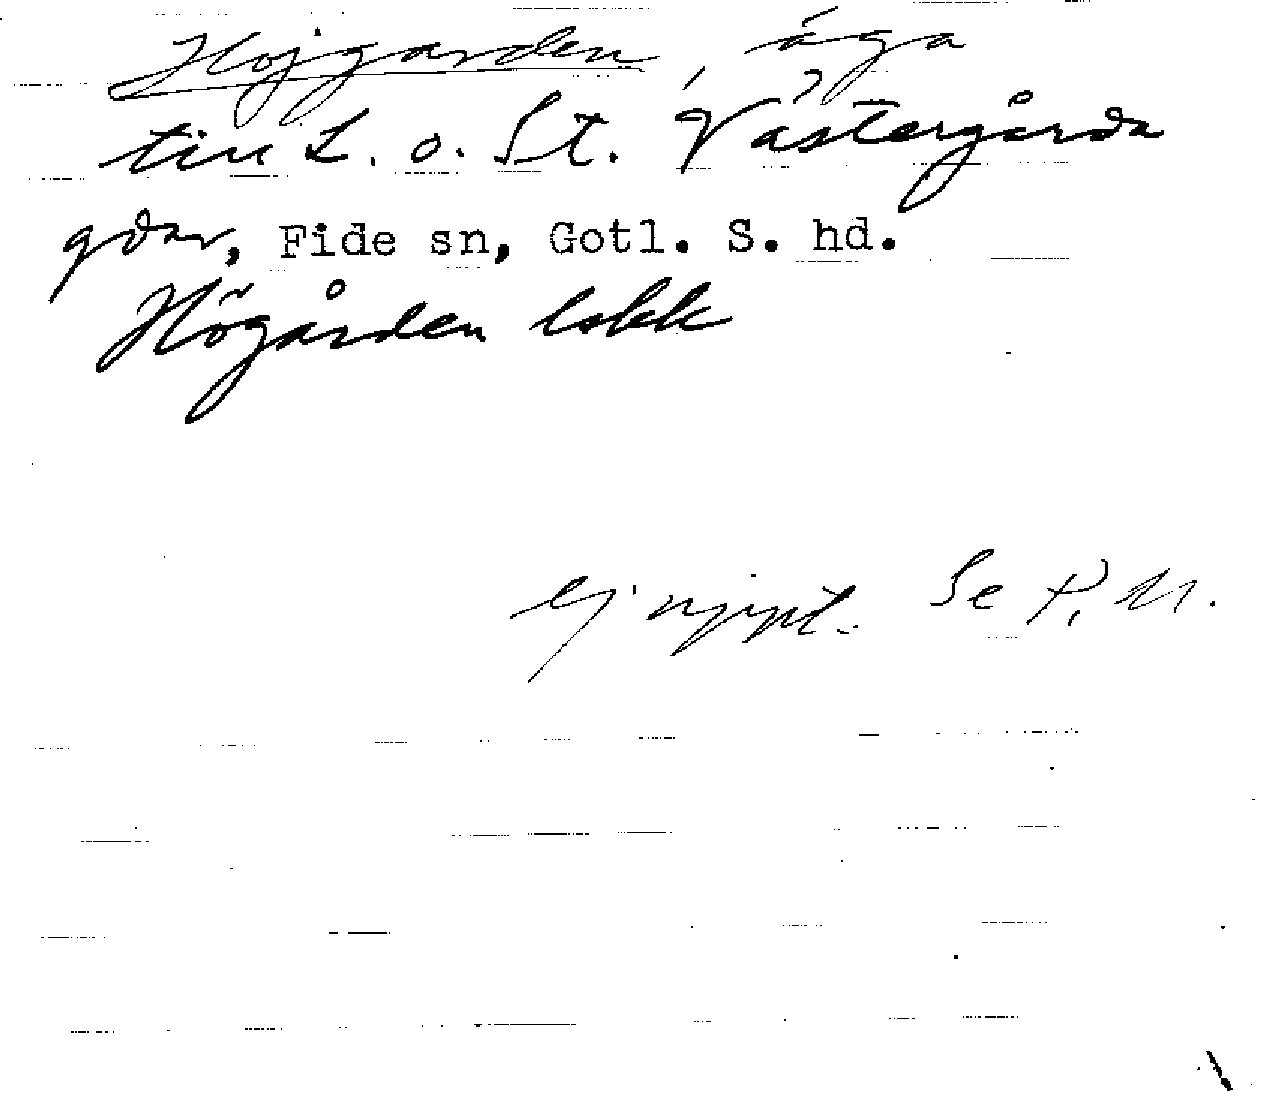 Höjgarden, äga
till L. o. St. Västergårda
gdar, Fide sn, Gotl. S. hd.
Högården lokk
ej uppt. Se P.M.